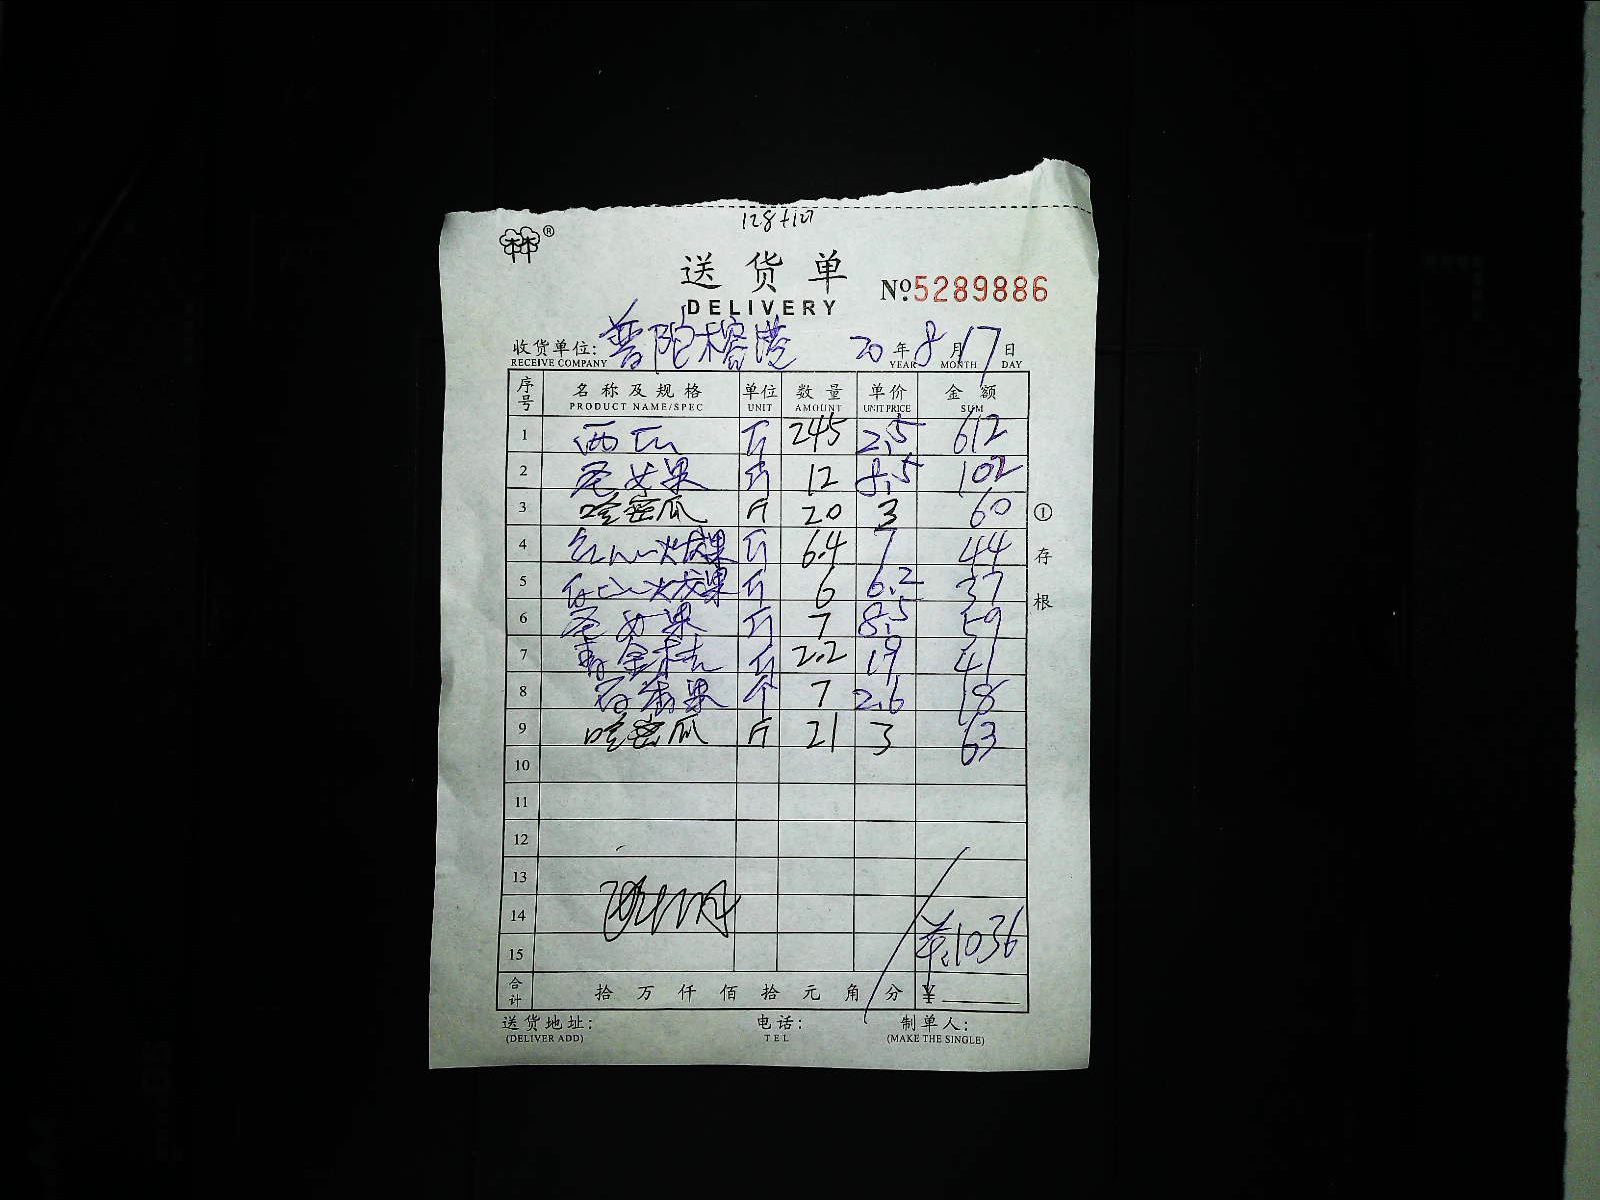 128+127
林®
送货单
DELIVERY
№5289886
收货单位: 普陀榕港 20年8月17日
RECEIVE COMPANY YEAR MONTH DAY
序号 名称及规格 单位 数量 单价 金额
PRODUCT NAME/SPEC UNIT AMOUNT UNIT PRICE SUM
1 西瓜 斤 245 2.5 612
2 圣女果 斤 12 8.5 102
3 哈密瓜 斤 20 3 60
4 红心火龙果 斤 6.4 7 44
5 白心火龙果 斤 6 6.2 37
6 圣女果 斤 7 8.5 59
7 青金桔 斤 2.2 19 41
8 百香果 个 7 2.6 18
9 哈密瓜 斤 21 3 63
10
11
12
13
14
15 1036
合计 拾万仟佰拾元角分 ¥
①存根
送货地址: 电话: 制单人:
(DELIVER ADD) TEL (MAKE THE SINGLE)